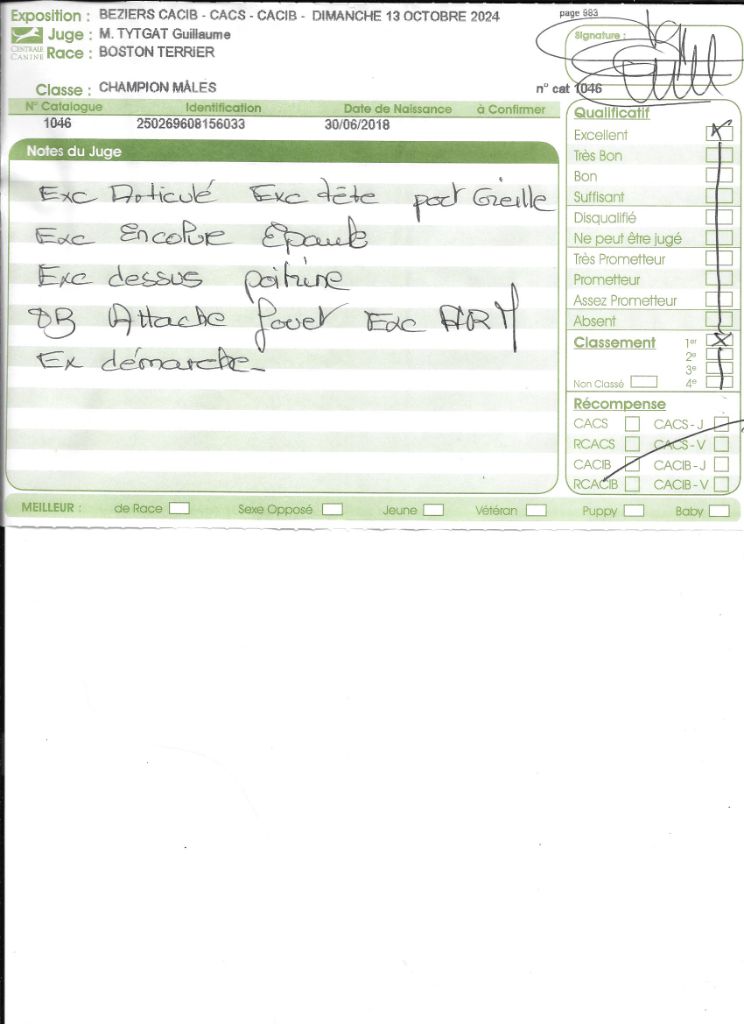 Exposition : BEZIERS CACIB - CACS - CACIB - DIMANCHE 13 OCTOBRE 2024
page 983
Juge : M. TYTGAT Guillaume
Signature :
CENTRALE CANINE
Race : BOSTON TERRIER
Classe : CHAMPION MÂLES
n° cat 1046
N° Catalogue Identification Date de Naissance à Confirmer
1046 250269608156033 30/06/2018
Notes du Juge
Exc Articulé Exc tête port Oreille
Exc Encolure Epaule
Exc dessus poitrine
TB Attache fouet Exc
Ex démarche
Qualificatif
Excellent X
Très Bon
Bon
Suffisant
Disqualifié
Ne peut être jugé
Très Prometteur
Prometteur
Assez Prometteur
Absent
Classement 1er X
2e
3e
Non Classé 4e
Récompense
CACS CACS - J
RCACS CACS - V
CACIB CACIB - J
RCACIB CACIB - V
MEILLEUR : de Race Sexe Opposé Jeune Vétéran Puppy Baby